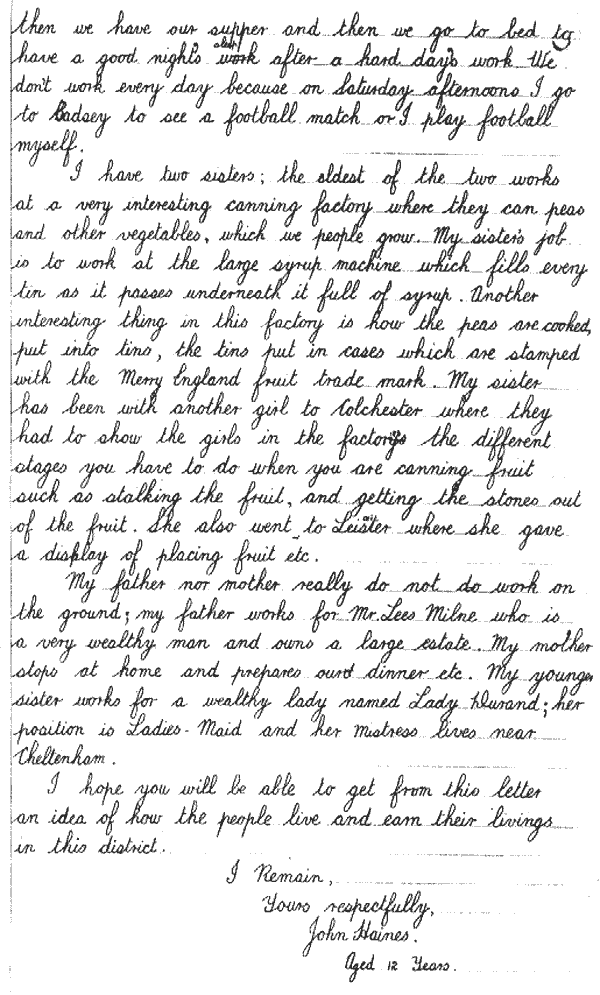 then we have our supper and then we go to bed to
have a good night's sleep work after a hard day's work We
don't work every day because on Saturday afternoons I go
to Badsey to see a football match or I play football
myself.
I have two sisters; the eldest of the two works
at a very interesting canning factory where they can peas
and other vegetables, which we people grow. My sister's job
is to work at the large syrup machine which fills every
tin as it passes underneath it full of syrup. Another
interesting thing in this factory is how the peas are cooked,
put into tins, the tins put in cases which are stamped
with the Merry England fruit trade mark. My sister
has been with another girl to Colchester where they
had to show the girls in the factory the different
stages you have to do when you are canning fruit
such as stalking the fruit, and getting the stones out
of the fruit. She also went to Leister where she gave
a display of placing fruit etc.
My father nor mother really do not do work on
the ground; my father works for Mr. Lees Milne who is
a very wealthy man and owns a large estate. My mother
stops at home and prepares our dinner etc. My younger
sister works for a wealthy lady named Lady Durand; her
position is Ladies-Maid and her Mistress lives near
Cheltenham.
I hope you will be able to get from this letter
an idea of how the people live and earn their livings
in this district.
I Remain,
Yours respectfully,
John Haines.
Aged 12 Years.